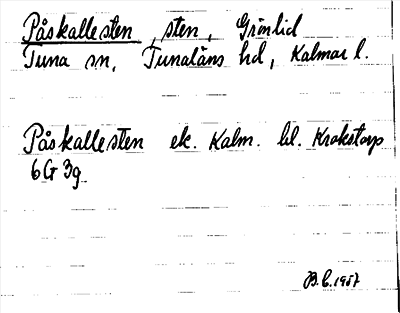 Påskallesten, sten, Grönlid
Tuna sn, Tunaläns hd, Kalmar l.
Påskallesten ek. Kalm. bl. Krokstorp
6G 3g
1957